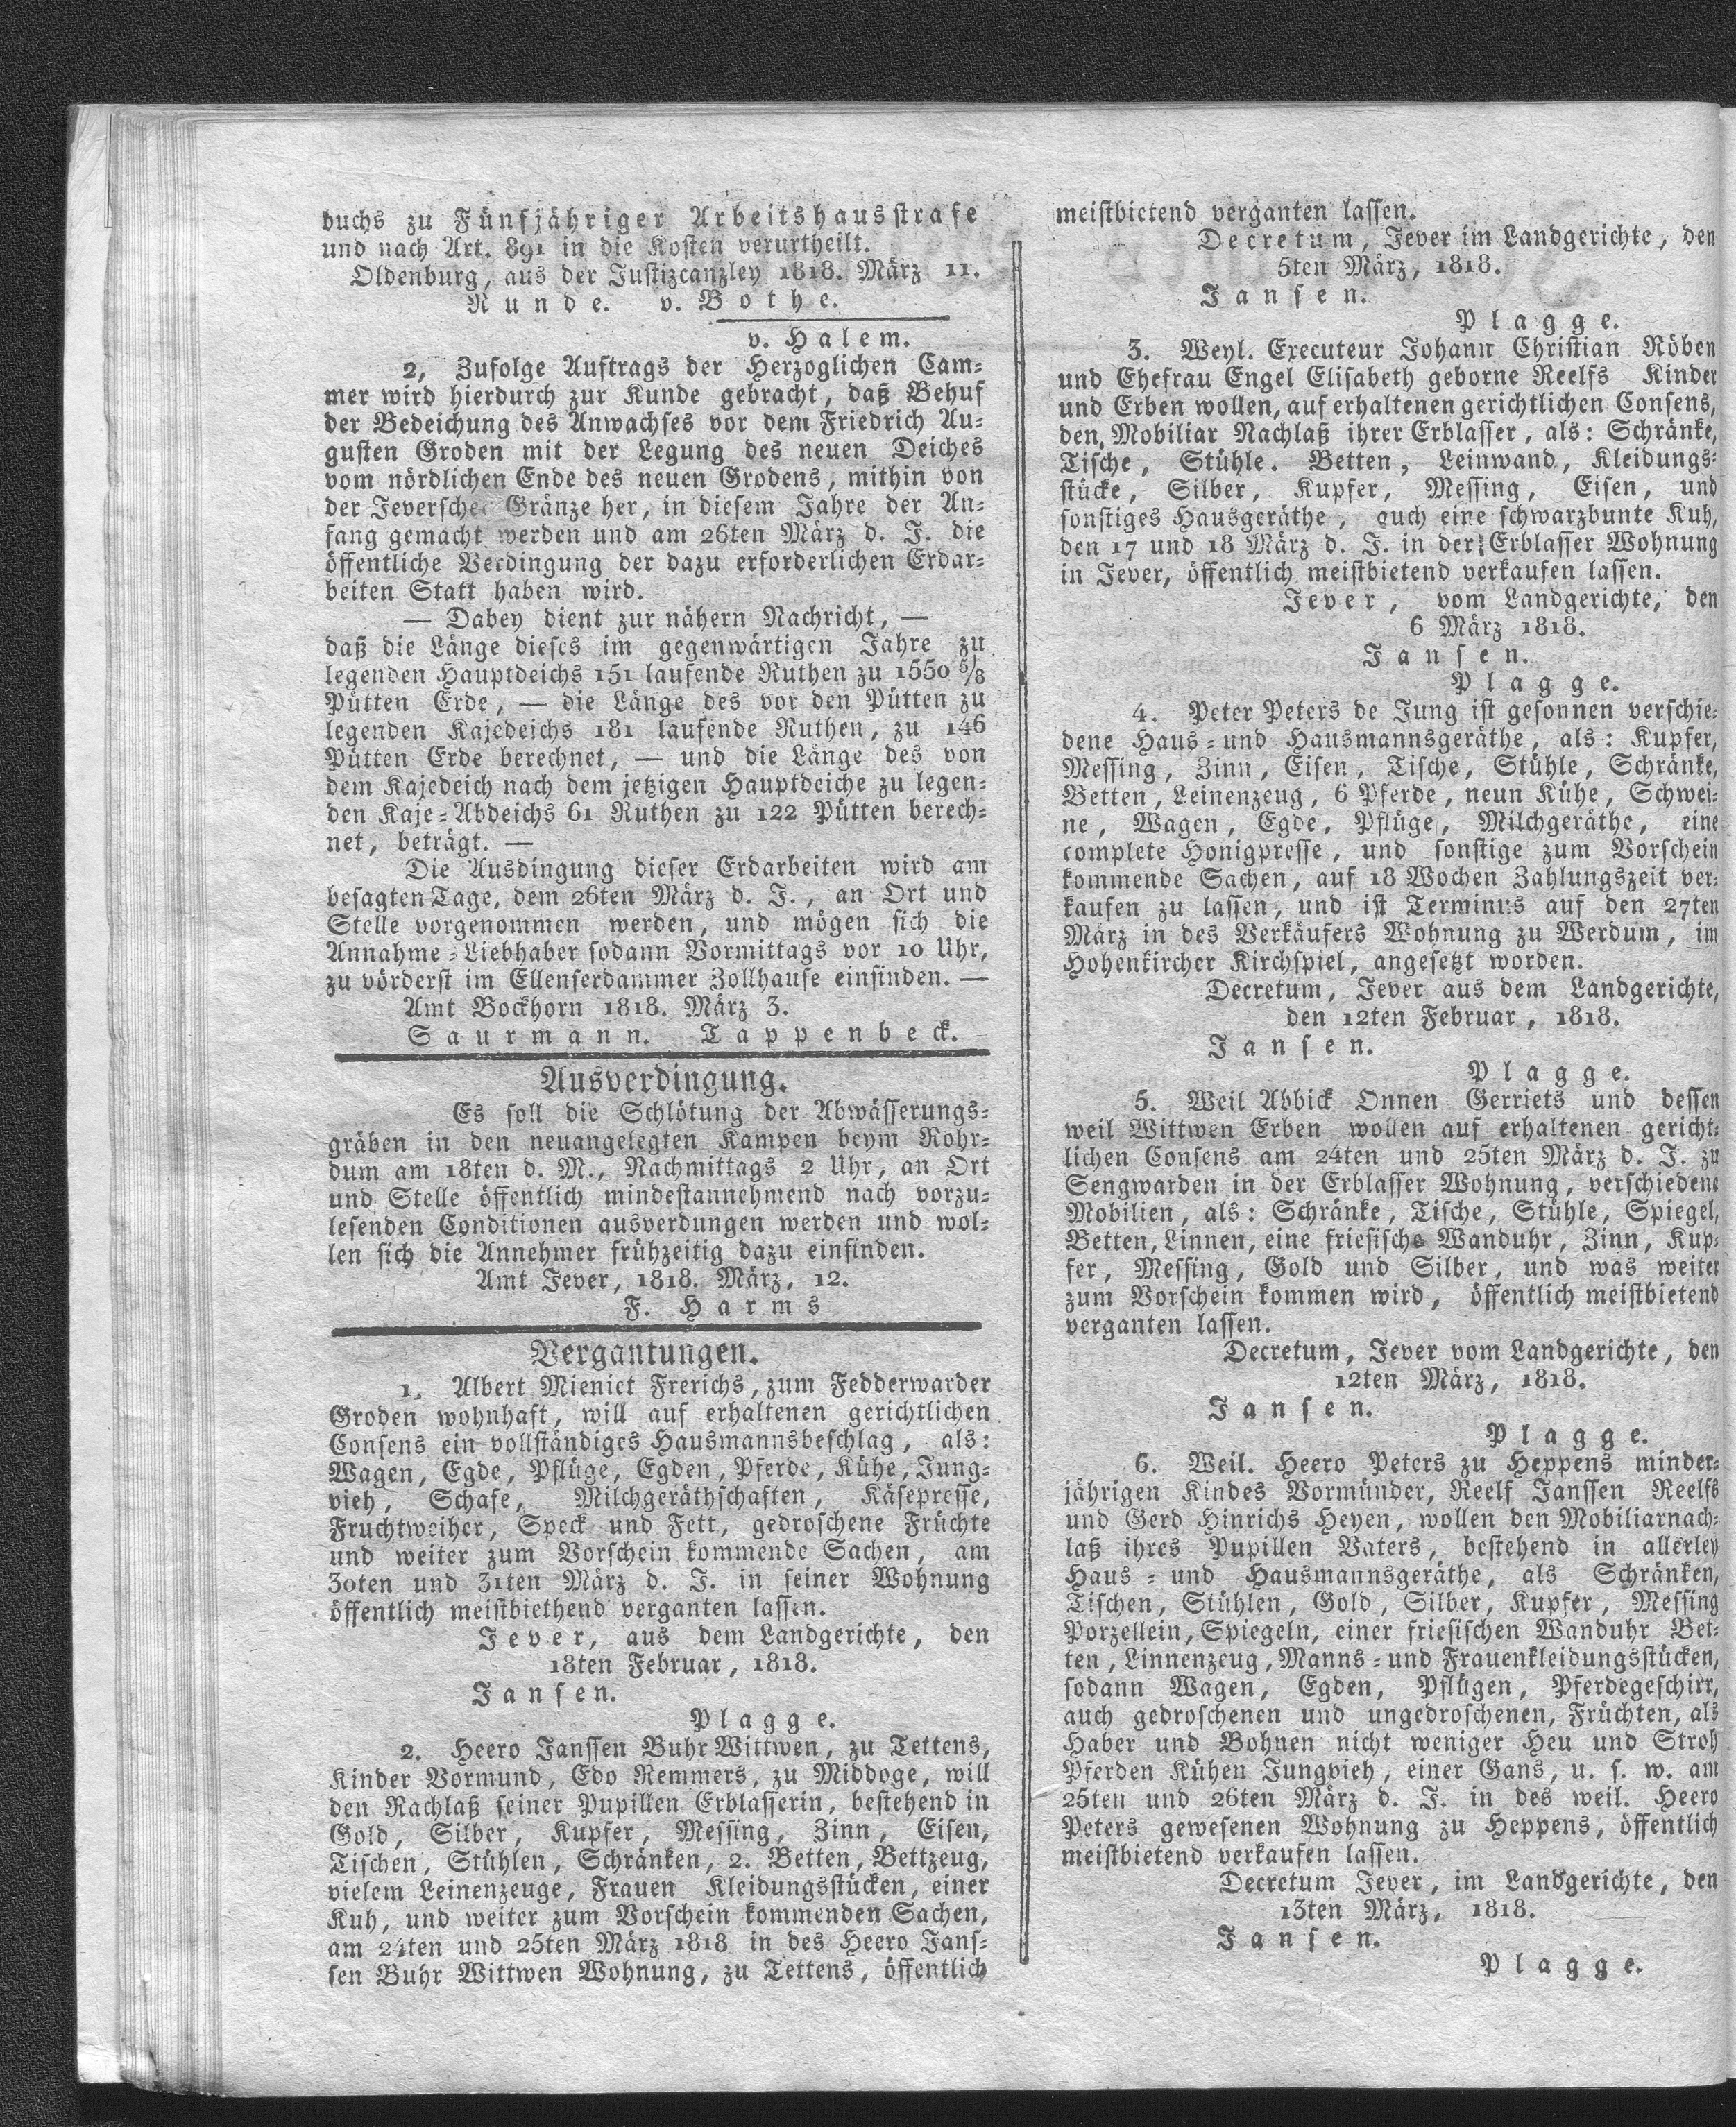 buchs zu Fünfjähriger Arbeitshausstrafe
und nach Art. 891 in die Kosten verurtheilt.
Oldenburg, aus der Justizcanzley 1818. März 11.
Runde. v. Bothe.
v. Halem.
2, Zufolge Auftrags der Herzoglichen Cam-
mer wird hierdurch zur Kunde gebracht, daß Behuf
der Bedeichung des Anwachses vor dem Friedrich Au-
gusten Groden mit der Legung des neuen Deiches
vom nördlichen Ende des neuen Grodens, mithin von
der Jeverschen Gränze her, in diesem Jahre der An-
fang gemacht werden und am 26ten März d. J. die
öffentliche Verdingung der dazu erforderlichen Erdar-
beiten Statt haben wird.
— Dabey dient zur nähern Nachricht, —
daß die Länge dieses im gegenwärtigen Jahre zu
legenden Hauptdeichs 151 laufende Ruthen zu 1550 5/8
Pütten Erde, — die Länge des vor den Pütten zu
legenden Kajedeichs 181 laufende Ruthen, zu 146
Pütten Erde berechnet, — und die Länge des von
dem Kajedeich nach dem jetzigen Hauptdeiche zu legen-
den Kaje-Abdeichs 61 Ruthen zu 122 Pütten berech-
net, beträgt. —
Die Ausdingung dieser Erdarbeiten wird am
besagten Tage, dem 26ten März d. J., an Ort und
Stelle vorgenommen werden, und mögen sich die
Annahme-Liebhaber sodann Vormittags vor 10 Uhr,
zu vörderst im Ellenserdammer Zollhause einfinden. —
Amt Bockhorn 1818. März 3.
Saurmann. Tappenbeck.
Ausverdingung.
Es soll die Schlötung der Abwässerungs-
gräben in den neuangelegten Kampen beym Rohr-
dum am 18ten d. M., Nachmittags 2 Uhr, an Ort
und Stelle öffentlich mindestannehmend nach vorzu-
lesenden Conditionen ausverdungen werden und wol-
len sich die Annehmer frühzeitig dazu einfinden.
Amt Jever, 1818. März, 12.
F. Harms
Vergantungen.
1. Albert Mieniet Frerichs, zum Fedderwarder
Groden wohnhaft, will auf erhaltenen gerichtlichen
Consens ein vollständiges Hausmannsbeschlag, als:
Wagen, Egde, Pflüge, Egden, Pferde, Kühe, Jung-
vieh, Schafe, Milchgeräthschaften, Käsepresse,
Fruchtweiher, Speck und Fett, gedroschene Früchte
und weiter zum Vorschein kommende Sachen, am
30ten und 31ten März d. J. in seiner Wohnung
öffentlich meistbiethend verganten lassen.
Jever, aus dem Landgerichte, den
18ten Februar, 1818.
Jansen.
Plagge.
2. Heero Janssen Buhr Wittwen, zu Tettens,
Kinder Vormund, Edo Remmers, zu Middoge, will
den Nachlaß seiner Pupillen Erblasserin, bestehend in
Gold, Silber, Kupfer, Messing, Zinn, Eisen,
Tischen, Stühlen, Schränken, 2. Betten, Bettzeug,
vielem Leinenzeuge, Frauen Kleidungsstücken, einer
Kuh, und weiter zum Vorschein kommenden Sachen,
am 24ten und 25ten März 1818 in des Heero Jans-
sen Buhr Wittwen Wohnung, zu Tettens, öffentlich
meistbietend verganten lassen.
Decretum, Jever im Landgerichte, den
5ten März, 1818.
Jansen.
Plagge.
3. Weyl. Executeur Johann Christian Röben
und Ehefrau Engel Elisabeth geborne Reelfs Kinder
und Erben wollen, auf erhaltenen gerichtlichen Consens,
den Mobiliar Nachlaß ihrer Erblasser, als: Schränke,
Tische, Stühle. Betten, Leinwand, Kleidungs-
stücke, Silber, Kupfer, Messing, Eisen, und
sonstiges Hausgeräthe, auch eine schwarzbunte Kuh,
den 17 und 18 März d. J. in der Erblasser Wohnung
in Jever, öffentlich meistbietend verkaufen lassen.
Jever, vom Landgerichte, den
6 März 1818.
Jansen.
Plagge.
4. Peter Peters de Jung ist gesonnen verschie-
dene Haus- und Hausmannsgeräthe, als: Kupfer,
Messing, Zinn, Eisen, Tische, Stühle, Schränke,
Betten, Leinenzeug, 6 Pferde, neun Kühe, Schwei-
ne, Wagen, Egde, Pflüge, Milchgeräthe, eine
complete Honigpresse, und sonstige zum Vorschein
kommende Sachen, auf 18 Wochen Zahlungszeit ver-
kaufen zu lassen, und ist Terminus auf den 27ten
März in des Verkäufers Wohnung zu Werdum, im
Hohenkircher Kirchspiel, angesetzt worden.
Decretum, Jever aus dem Landgerichte,
den 12ten Februar, 1818.
Jansen.
Plagge.
5. Weil Abbick Onnen Gerriets und dessen
weil Wittwen Erben wollen auf erhaltenen gericht-
lichen Consens am 24ten und 25ten März d. J. zu
Sengwarden in der Erblasser Wohnung, verschiedene
Mobilien, als: Schränke, Tische, Stühle, Spiegel,
Betten, Linnen, eine friesische Wanduhr, Zinn, Kup-
fer, Messing, Gold und Silber, und was weiter
zum Vorschein kommen wird, öffentlich meistbietend
verganten lassen.
Decretum, Jever vom Landgerichte, den
12ten März, 1818.
Jansen.
Plagge.
6. Weil. Heero Peters zu Heppens minder-
jährigen Kindes Vormünder, Reelf Janssen Reelfs
und Gerd Hinrichs Heyen, wollen den Mobiliarnach-
laß ihres Pupillen Vaters, bestehend in allerley
Haus- und Hausmannsgeräthe, als Schränken,
Tischen, Stühlen, Gold, Silber, Kupfer, Messing
Porzellein, Spiegeln, einer friesischen Wanduhr Bet-
ten, Linnenzeug, Manns- und Frauenkleidungsstücken,
sodann Wagen, Egden, Pflügen, Pferdegeschirr,
auch gedroschenen und ungedroschenen, Früchten, als
Haber und Bohnen nicht weniger Heu und Stroh
Pferden Kühen Jungvieh, einer Gans, u. s. w. am
25ten und 26ten März d. J. in des weil. Heero
Peters gewesenen Wohnung zu Heppens, öffentlich
meistbietend verkaufen lassen.
Decretum Jever, im Landgerichte, den
13ten März, 1818.
Jansen.
Plagge.